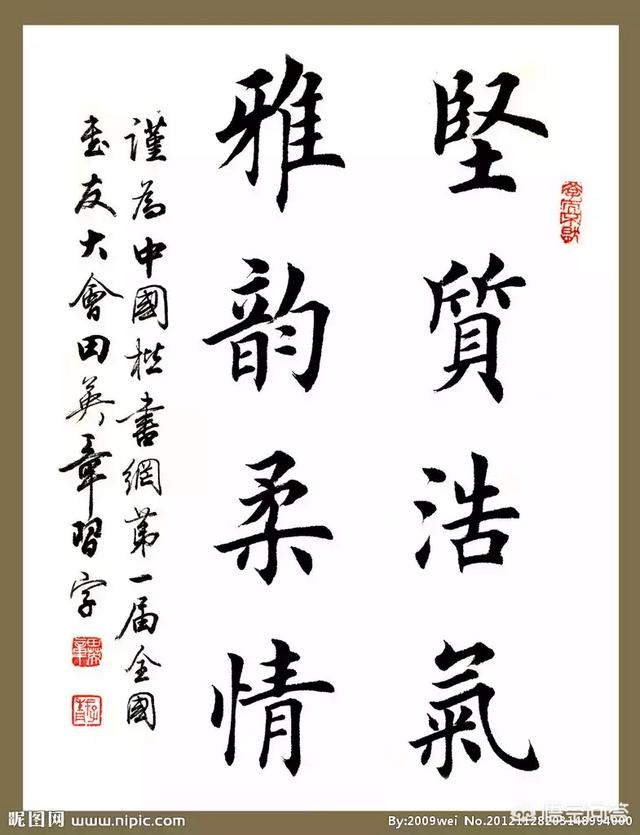 堅質浩氣
雅韵柔情
謹為中國楷書網第一届全國
書友大會田英章習字
昵图网 www.nipic.com
By:2009wei No.20121128203148994000
悟空问答